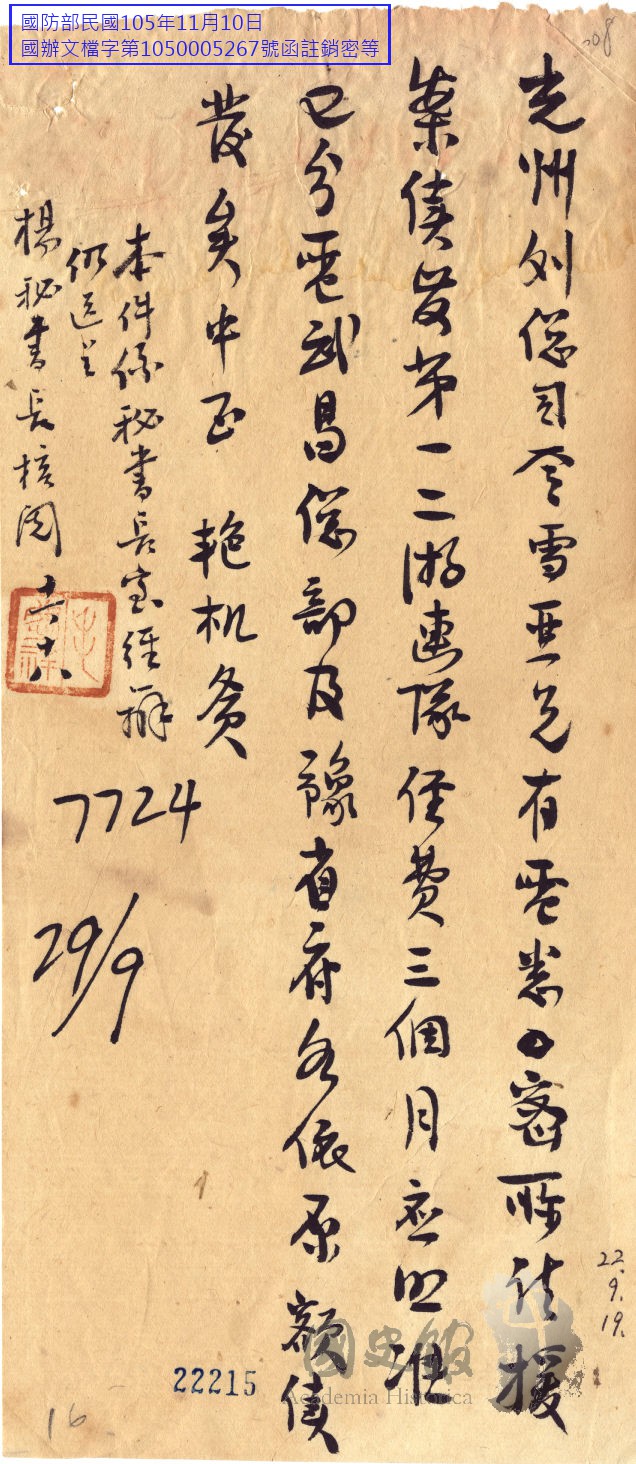 國防部民國105年11月10日
國辦文檔字第1050005267號函註銷密等
208
光州刘總司令雪亞兄有電悉密所請援
案續發第一二游連隊經費三個月應照准
已分電武昌總部及豫省府各依原額續
發矣中正 艳机贛
本件係秘書長室經辦
仍送呈
楊秘書長核閱 十六
7724
29/9
22.9.19.
22215
16
國史館
Academia Historica